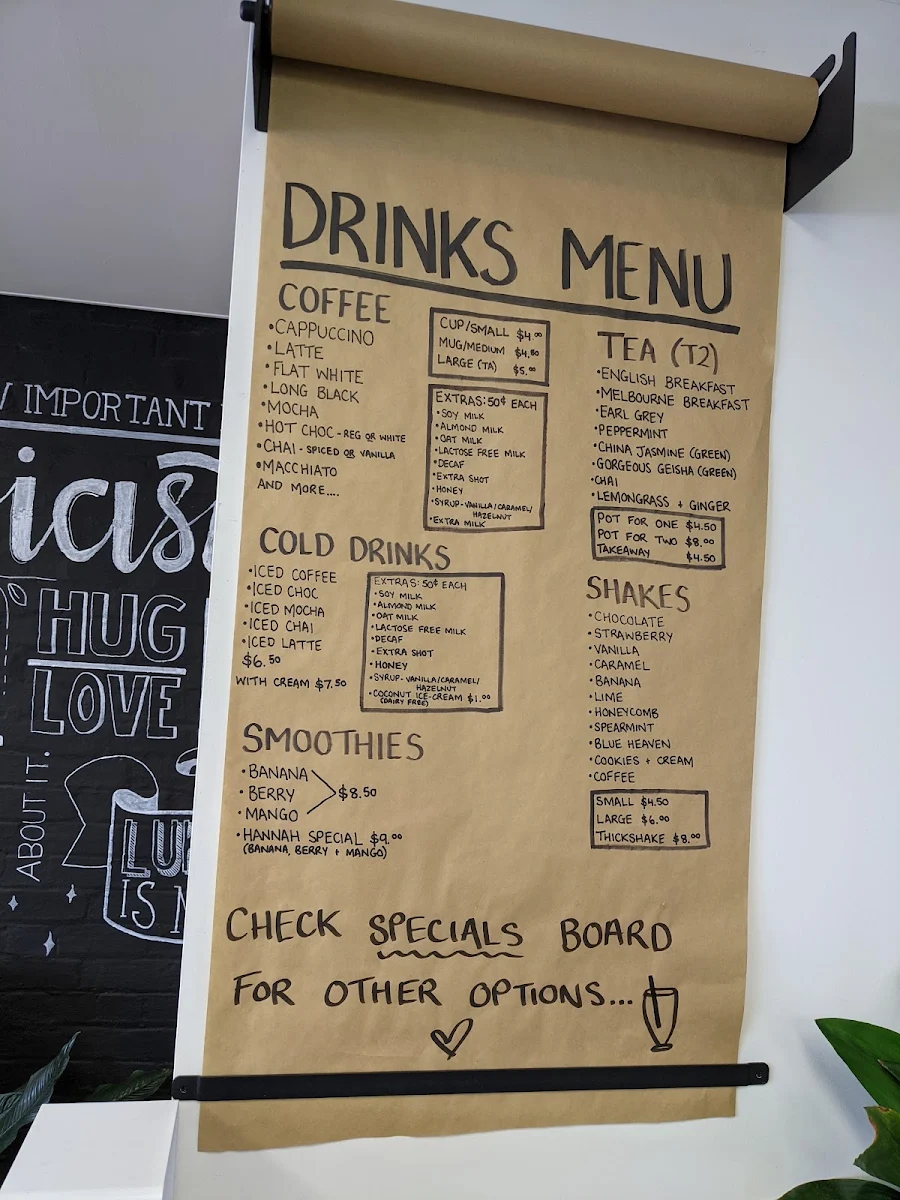 DRINKS MENU
COFFEE
•CAPPUCCINO
•LATTE
•FLAT WHITE
•LONG BLACK
•MOCHA
•HOT CHOC - REG OR WHITE
•CHAI - SPICED OR VANILLA
•MACCHIATO
AND MORE....
CUP/SMALL $4.00
MUG/MEDIUM $4.50
LARGE (TA) $5.00
EXTRAS: 50¢ EACH
•SOY MILK
•ALMOND MILK
•OAT MILK
•LACTOSE FREE MILK
•DECAF
•EXTRA SHOT
•HONEY
•SYRUP-VANILLA/CARAMEL/
HAZELNUT
•EXTRA MILK
COLD DRINKS
•ICED COFFEE
•ICED CHOC
•ICED MOCHA
•ICED CHAI
•ICED LATTE
$6.50
WITH CREAM $7.50
EXTRAS: 50¢ EACH
•SOY MILK
•ALMOND MILK
•OAT MILK
•LACTOSE FREE MILK
•DECAF
•EXTRA SHOT
•HONEY
•SYRUP-VANILLA/CARAMEL/
HAZELNUT
•COCONUT ICE-CREAM $1.00
(DAIRY FREE)
SMOOTHIES
•BANANA
•BERRY $8.50
•MANGO
•HANNAH SPECIAL $9.00
(BANANA, BERRY + MANGO)
TEA (T2)
•ENGLISH BREAKFAST
•MELBOURNE BREAKFAST
•EARL GREY
•PEPPERMINT
•CHINA JASMINE (GREEN)
•GORGEOUS GEISHA (GREEN)
•CHAI
•LEMONGRASS + GINGER
POT FOR ONE $4.50
POT FOR TWO $8.00
TAKEAWAY $4.50
SHAKES
•CHOCOLATE
•STRAWBERRY
•VANILLA
•CARAMEL
•BANANA
•LIME
•HONEYCOMB
•SPEARMINT
•BLUE HEAVEN
•COOKIES + CREAM
•COFFEE
SMALL $4.50
LARGE $6.00
THICKSHAKE $8.00
CHECK SPECIALS BOARD
FOR OTHER OPTIONS...
IMPORTANT
HUG
LOVE
ABOUT IT.
IS